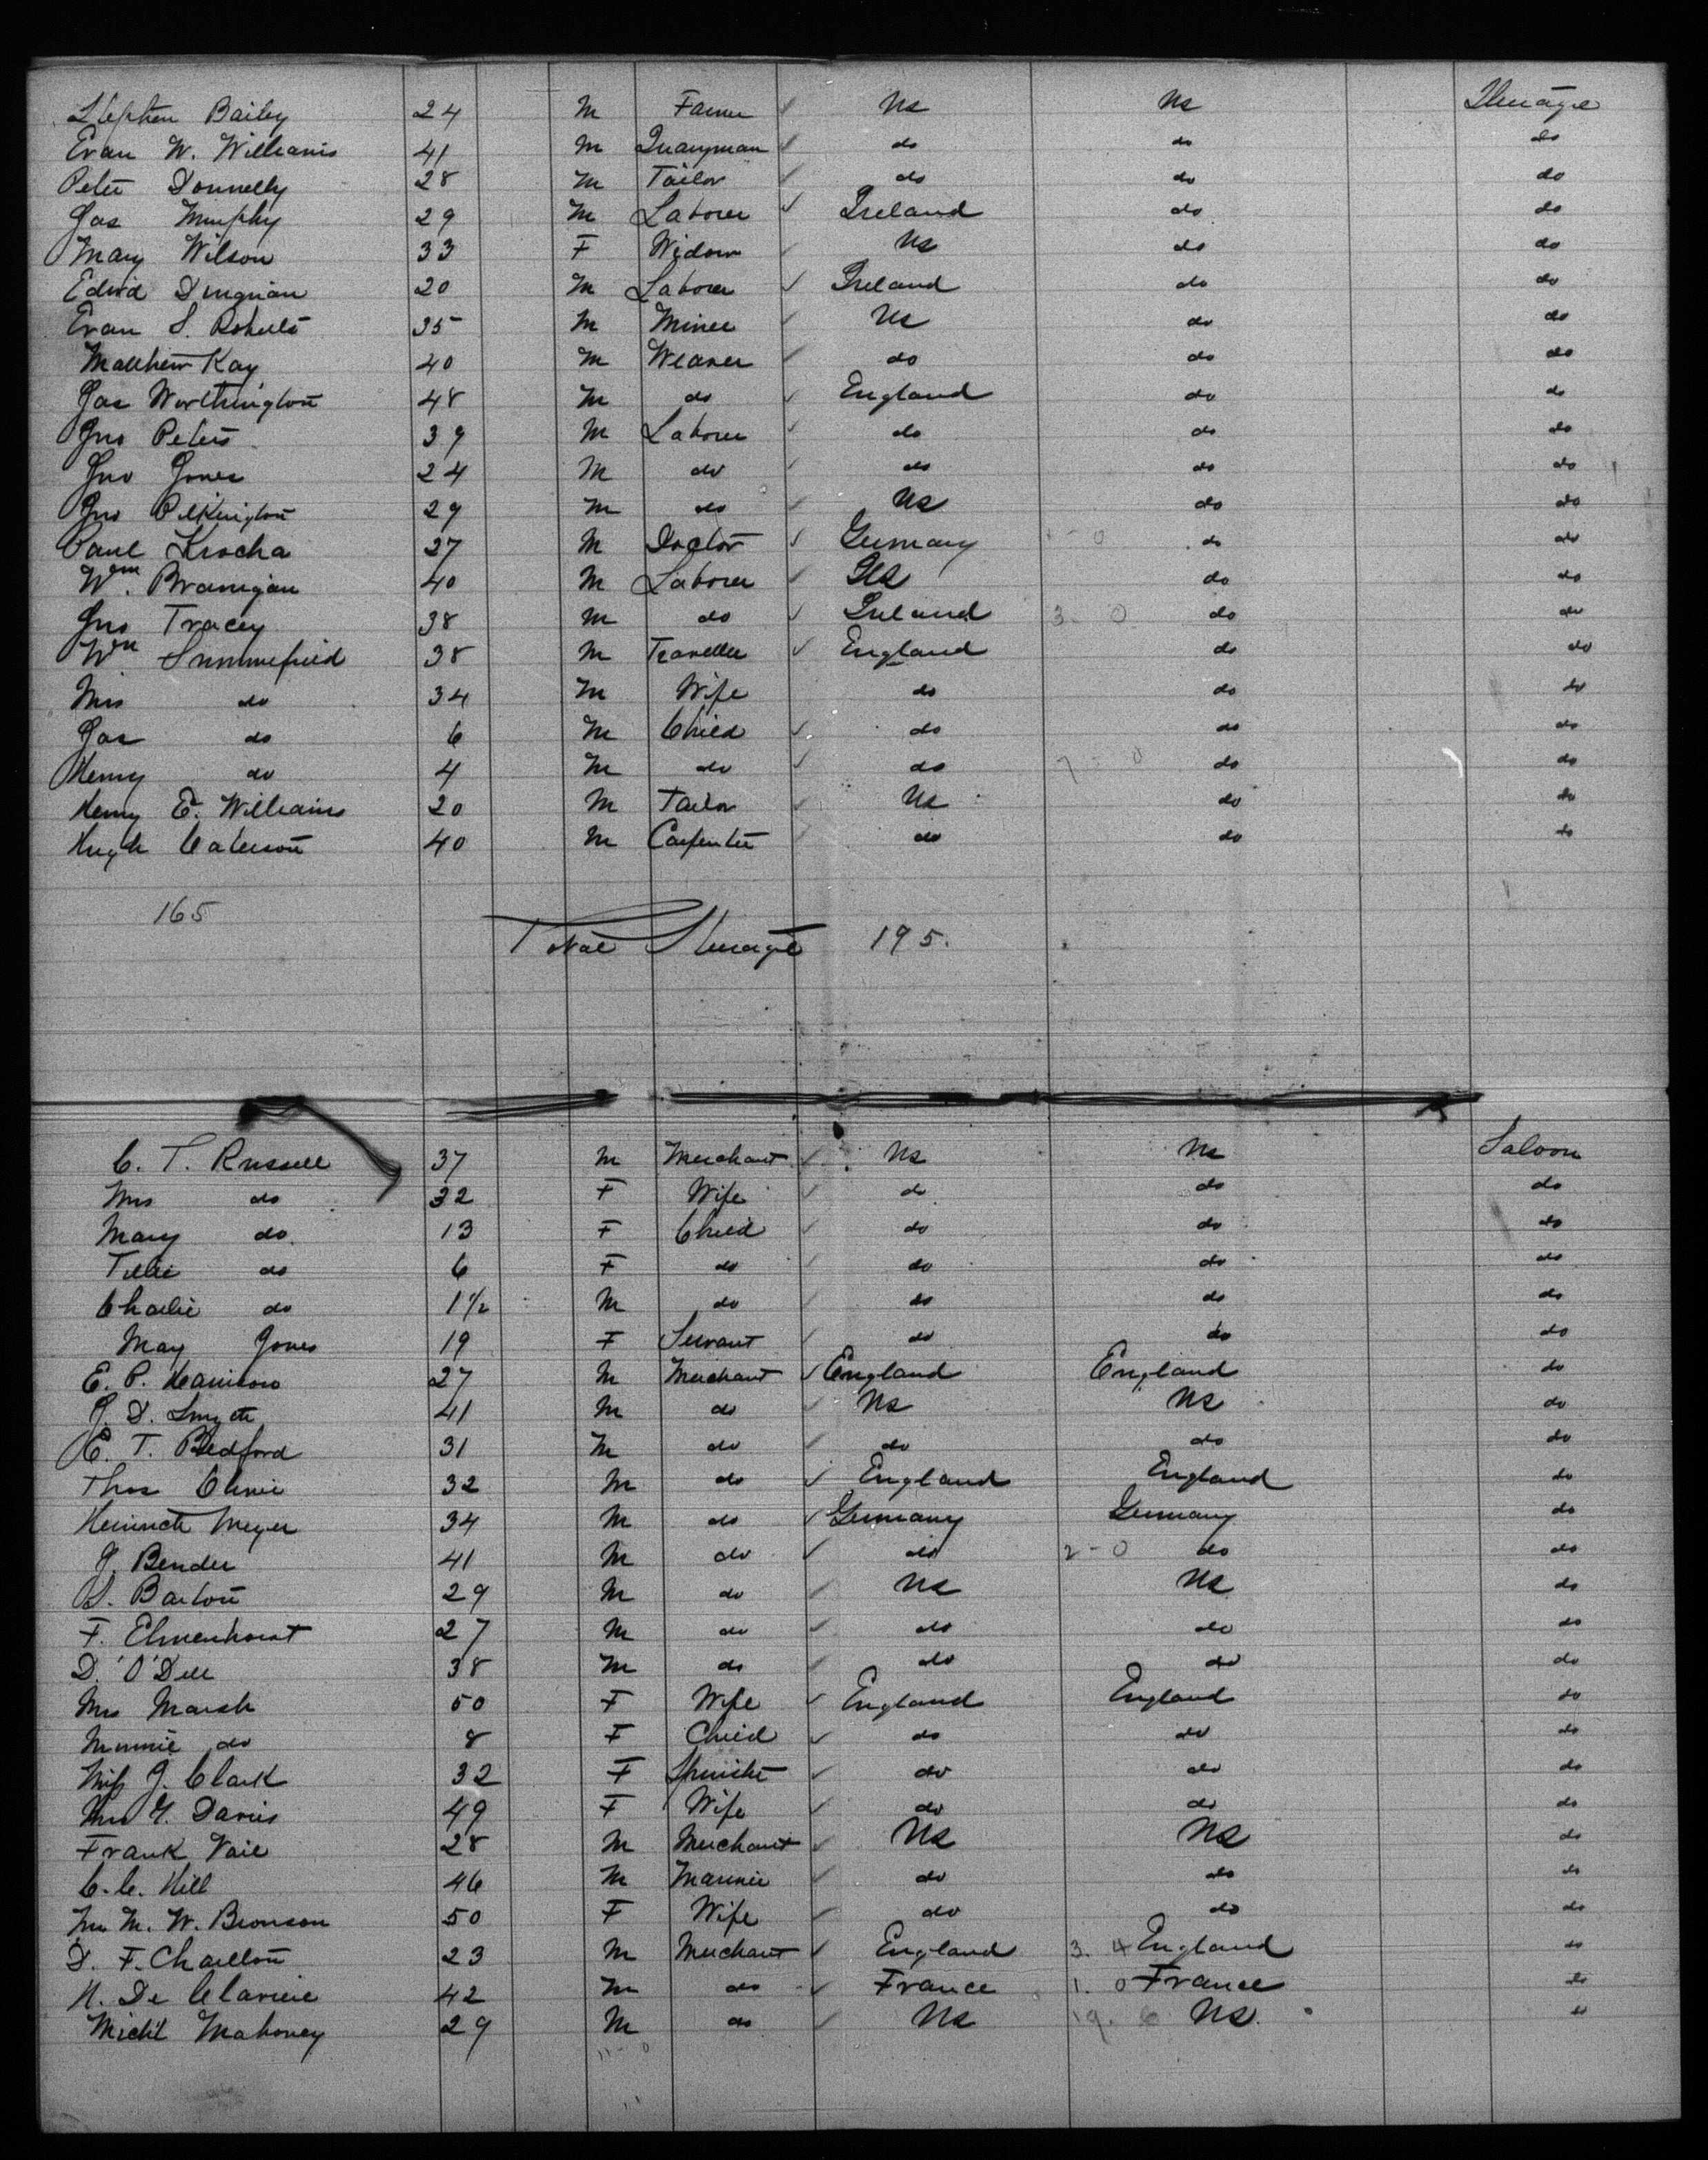 Stephen Bailey 24 M Farmer Us Us Steerage
Evan W. Williams 41 M Quarryman do do do
Peter Donnelly 28 M Tailor do do do
Jas Murphy 29 M Laborer Ireland do do
Mary Wilson 33 F Widow Us do do
Edwd Dingnan 20 M Laborer Ireland do do
Evan S. Roberts 35 M Miner Us do do
Matthew Kay 40 M Weaver do do do
Jas Worthington 48 M do England do do
Jno Peters 39 M Laborer do do do
Jno Jones 24 M do do do do
Jno Pilkington 29 M do Us do do
Paul Krocha 27 M Doctor Germany do do
Wm. Branigan 40 M Laborer Us do do
Jno Tracey 38 M do Ireland 3 - 0 do do
Wm Summefield 38 M Traveller England do do
Mrs do 34 M Wife do do do
Jas do 6 M Child do do do
Henry do 4 M do do 7 - 0 do do
Henry E. Williams 20 M Tailor Us do do
Hugh Caterson 40 M Carpenter do do do
165
Total Steerage 195.
C. T. Russell 37 M Merchant Us Us Saloon
Mrs do 32 F Wife do do do
Mary do 13 F Child do do do
Tillie do 6 F do do do do
Charlie do 1 1/2 M do do do do
May Jones 19 F Servant do do do
E. P. Harrison 27 M Merchant England England do
J. D. Smyth 41 M do Us Us do
E. T. Bedford 31 M do do do do
Thos 32 M do England England do
Heinrich Meyer 34 M do Germany Germany do
J. Bender 41 M do do 2 - 0 do do
S. Barton 29 M do Us Us do
F. Elmenhorst 27 M do do do do
D. O'Dell 38 M do do do do
Mrs Marsh 50 F Wife England England do
Minnie do 8 F Child do do do
Miss J. Clark 32 F Spinster do do do
Mrs Y. Davies 49 F Wife do do do
Frank Vail 28 M Merchant Us Us do
C. C. Hill 46 M Mariner do do do
Mrs M. W. Bronson 50 F Wife do do do
D. F. Charlton 23 M Merchant England 3. 4 England do
H. De 42 M do France 1. 0 France do
Michl Mahoney 29 M do Us 19. 6 Us do
11 - 0